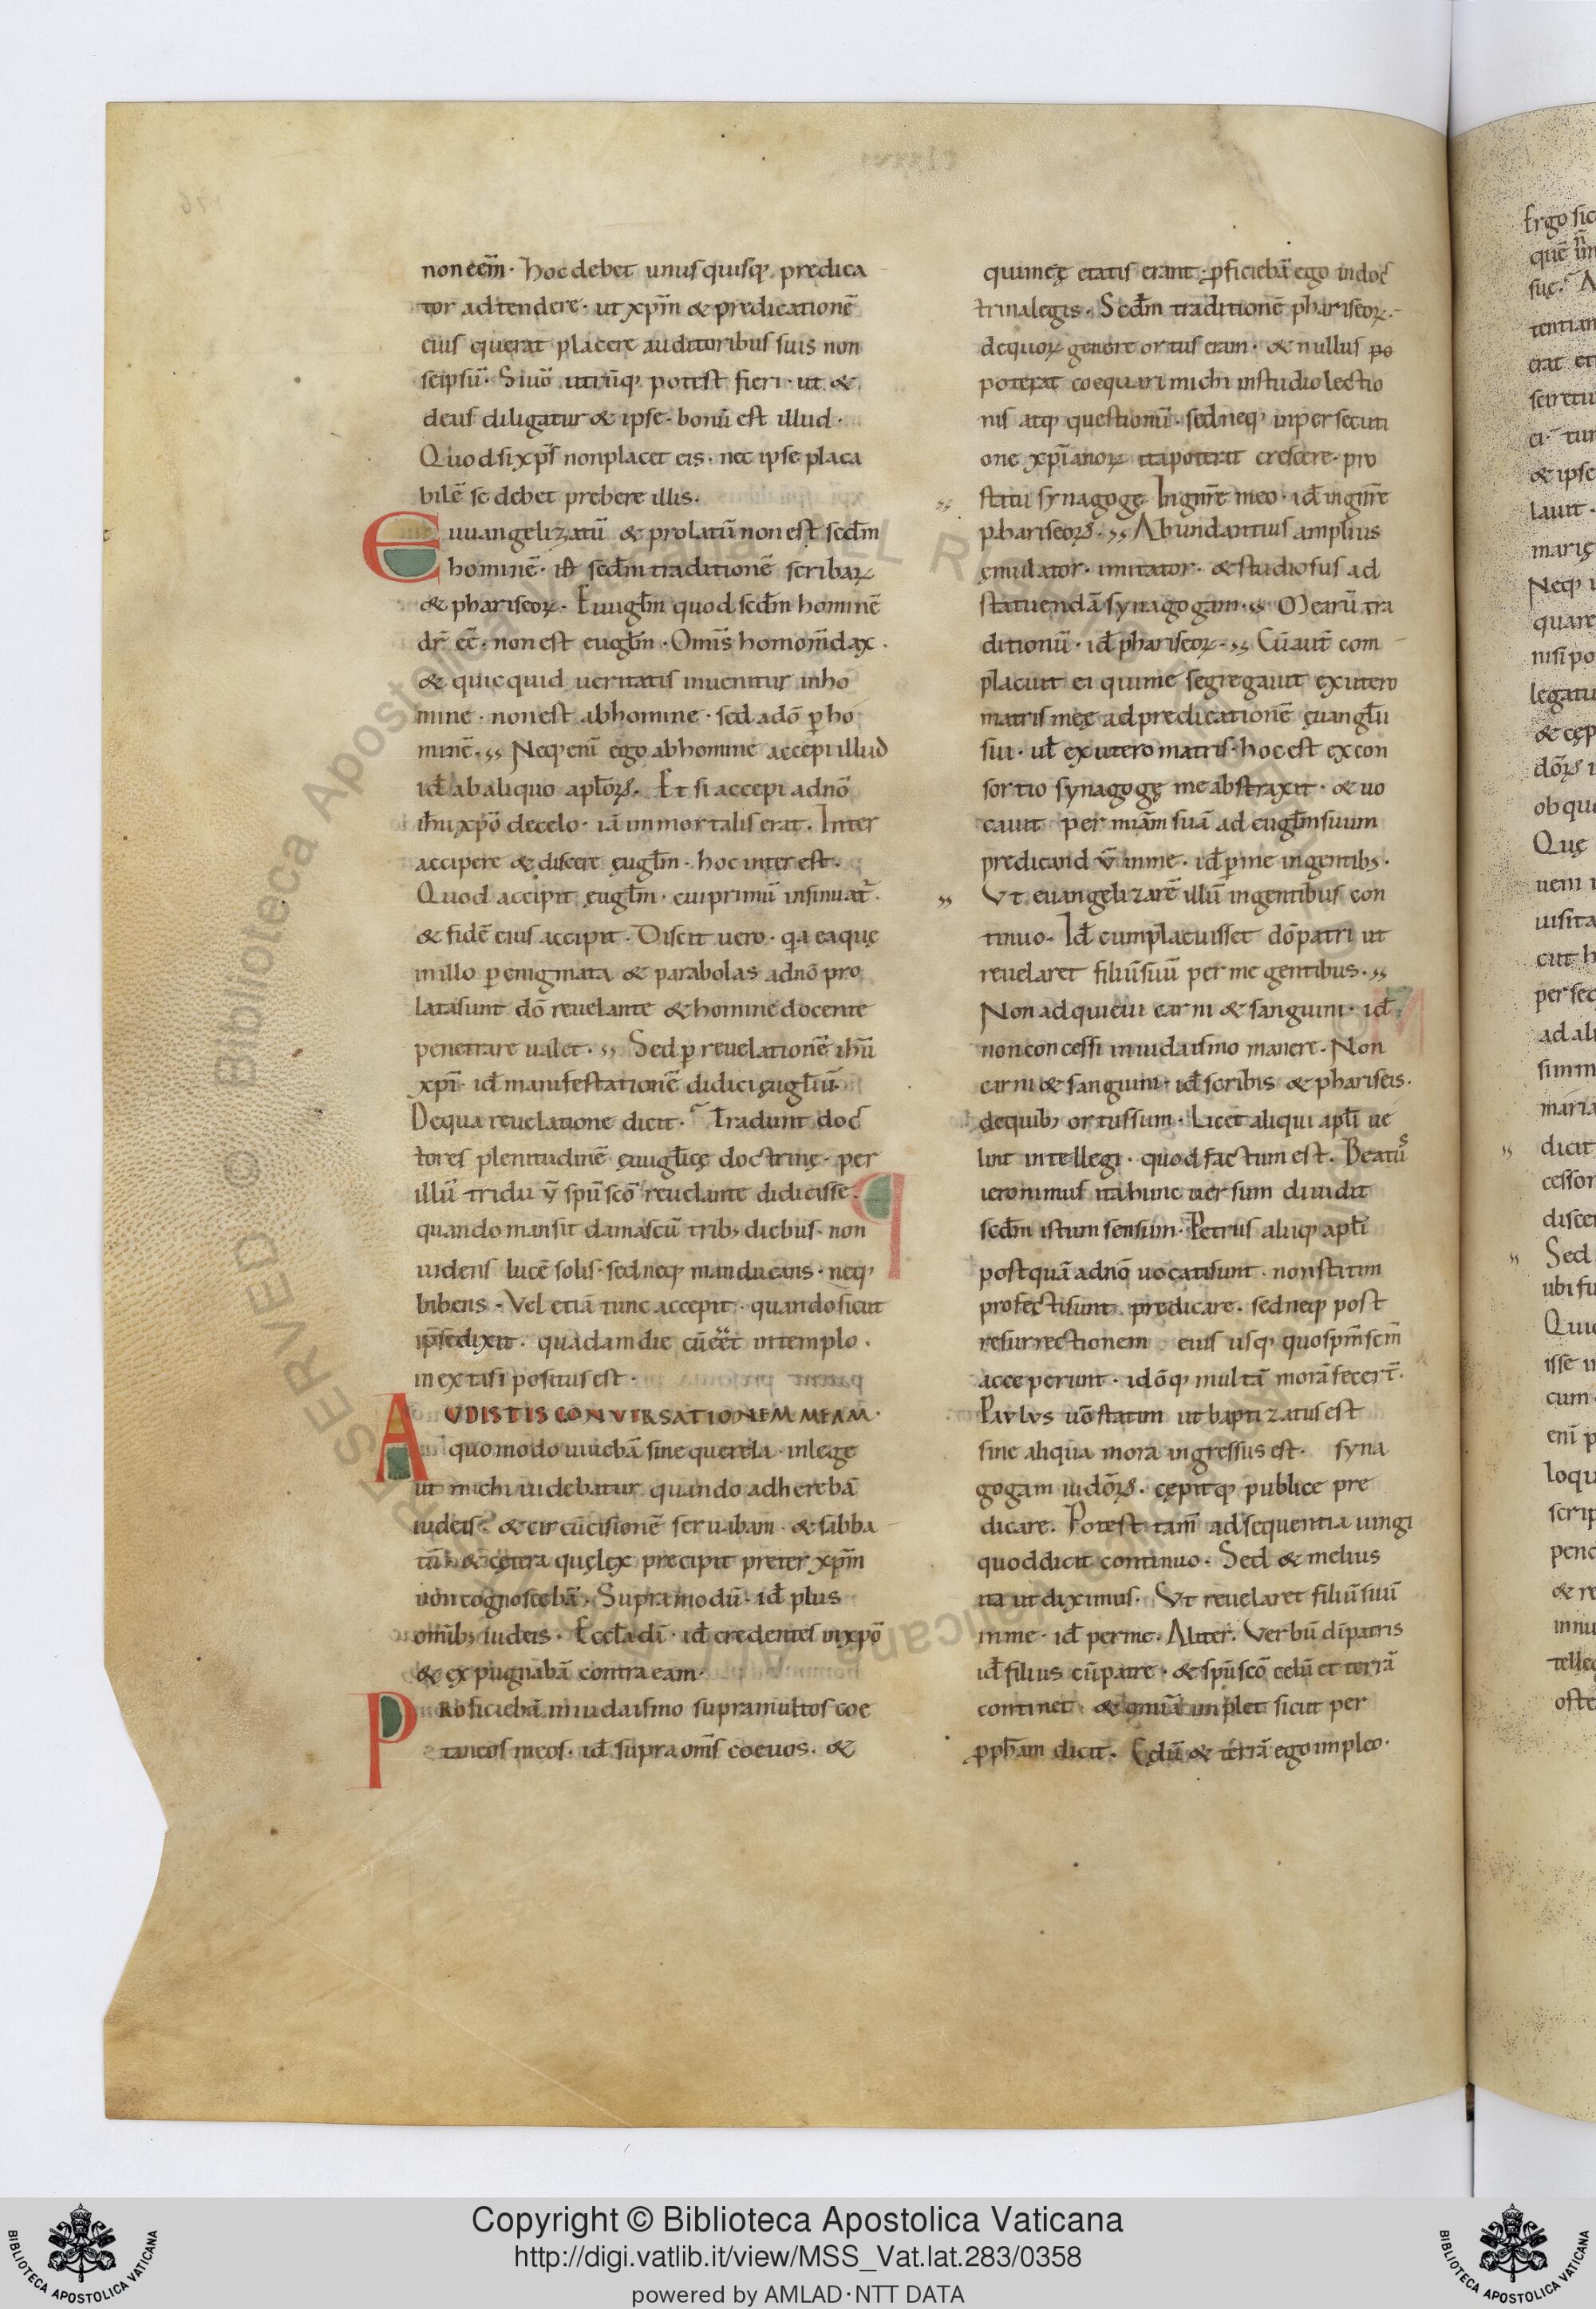 non eēm· hoc debet unusquisq; predica
tor adtendere· ut xp̄m & predicationē
eius querat placere auditoribus suis non
seipsū· Si uō utrūq; potest fieri· ut &
deus diligatur & ipse· bonū est illud·
Quod si xp̄s non placet eis· nec ipse placa
bilē se debet prebere illis·
Euuangelizatū & prolatū non est scđm
hominē· iđ scđm traditionē scribaꝝ
& phariseoꝝ· Euugłm quod scđm hominē
dr̄ eē· non est eugłm· Omīs homo m̄dax·
& quicquid ueritatis inuenitur in ho
mine· non est ab homine· sed a dō ꝑ ho
minē·,, Neq; enī ego ab homine accepi illud
iđ ab aliquo apłoꝝ· Et si accepi a dnō
ihu xp̄o de celo· iā immortalis erat· Inter
accipere & discere ęugłm· hoc interest·
Quod accipit ęugłm· cui primū insinuat̄·
& fidē eius accipit· Discit uero· qa ea quę
in illo ꝑ enigmata & parabolas a dnō pro
lata sunt dō reuelante & homine docente
penetrare ualet·,, Sed ꝑ reuelationē ihū
xp̄i· iđ manifestationē didici ęugłiū·
De qua reuelatione dicit· Tradunt doc
tores plenitudinē ęuugłicę doctrinę· per
illū triduū spū scō reuelante didicisse·
quando mansit damascū trib; diebus· non
uidens lucē solis· sed neq; manducans· neq;
bibens· Vel etiā tunc accepit· quando sicut
ipse dixit· quadam die cū eēt in templo·
in extasi positus est·
AVDISTIS CONVERSATIONEM MEAM·
quomodo uiuebā sine querela· in lege
ut michi uidebatur quando adherebā
iudeis· & circūcisionē seruabam· & sabba
tū· & cętera quę lex precipit preter xp̄m
non cognoscebā· Supra modū· iđ plus
omīb; iudeis· Eccłā dī· iđ credentes in xp̄o
& expugnabā contra eam·
Proficiebā in iudaismo supra multos coe
taneos meos· iđ supra om̄s coeuos· &
qui meę etatis erant· ꝓficiebā ego in doc
trina legis· Scđm traditionē phariseoꝝ·
de quoꝝ genere ortus eram· & nullus po
poterat coequari michi in studio lectio
nis atq; questionū· sed neq; in persecuti
one xp̄ianoꝝ ita poterat crescere· pro
statu synagogę In gn̄re meo· iđ in gn̄re
phariseoꝝ·,, Abundantius amplius
ęmulator· imitator· & studiosus ad
statuendā synagogam·,, Mearū tra
ditionū· iđ phariseoꝝ·,, Cū aut̄ com
placuit ei qui me segregauit ex utero
matris męę ad predicationē ęuangłii
sui· uł ex utero matris· hoc est ex con
sortio synagogę me abstraxit· & uo
cauit per miām suā ad eugłm suum
predicandū in me· iđ ꝑ me in gentib;·
,, Vt euangelizarē illū in gentibus con
tinuo· Iđ cum placuisset dō patri ut
reuelaret filiū suū per me gentibus·,,
Non adquieui carni & sanguini· iđ
non concessi in iudaismo manere· Non
carni & sanguini· iđ scribis & phariseis·
de quib; ortus sum· Licet aliqui apłi ue
lint intellegi· quod factum est· Beatus
ieronimus ita hunc uersum diuidit
scđm istum sensum· Petrus aliiq; apłi
postquā a dnō uocati sunt· non statim
profecti sunt predicare· sed neq; post
resurrectionem eius usq; quo sp̄m scm̄
acceperunt· idōq; multā morā fecer̄t·
Paulus uō statim ut baptizatus est
sine aliqua mora ingressus est· syna
gogam iudōꝝ· cępitq; publice pre
dicare· Potest tam̄ ad sequentia iungi
quod dicit continuo· Sed & melius
ita ut diximus· Vt reuelaret filiū suū
in me· iđ per me· Aliter· Verbū dī patris
iđ filius cū patre· & spū scō celū et terrā
continet· & omīa implet sicut per
ꝓpħam dicit· Cęlū & terrā ego impleo·
Copyright © Biblioteca Apostolica Vaticana
http://digi.vatlib.it/view/MSS_Vat.lat.283/0358
powered by AMLAD·NTT DATA
BIBLIOTECA APOSTOLICA VATICANA
BIBLIOTECA APOSTOLICA VATICANA